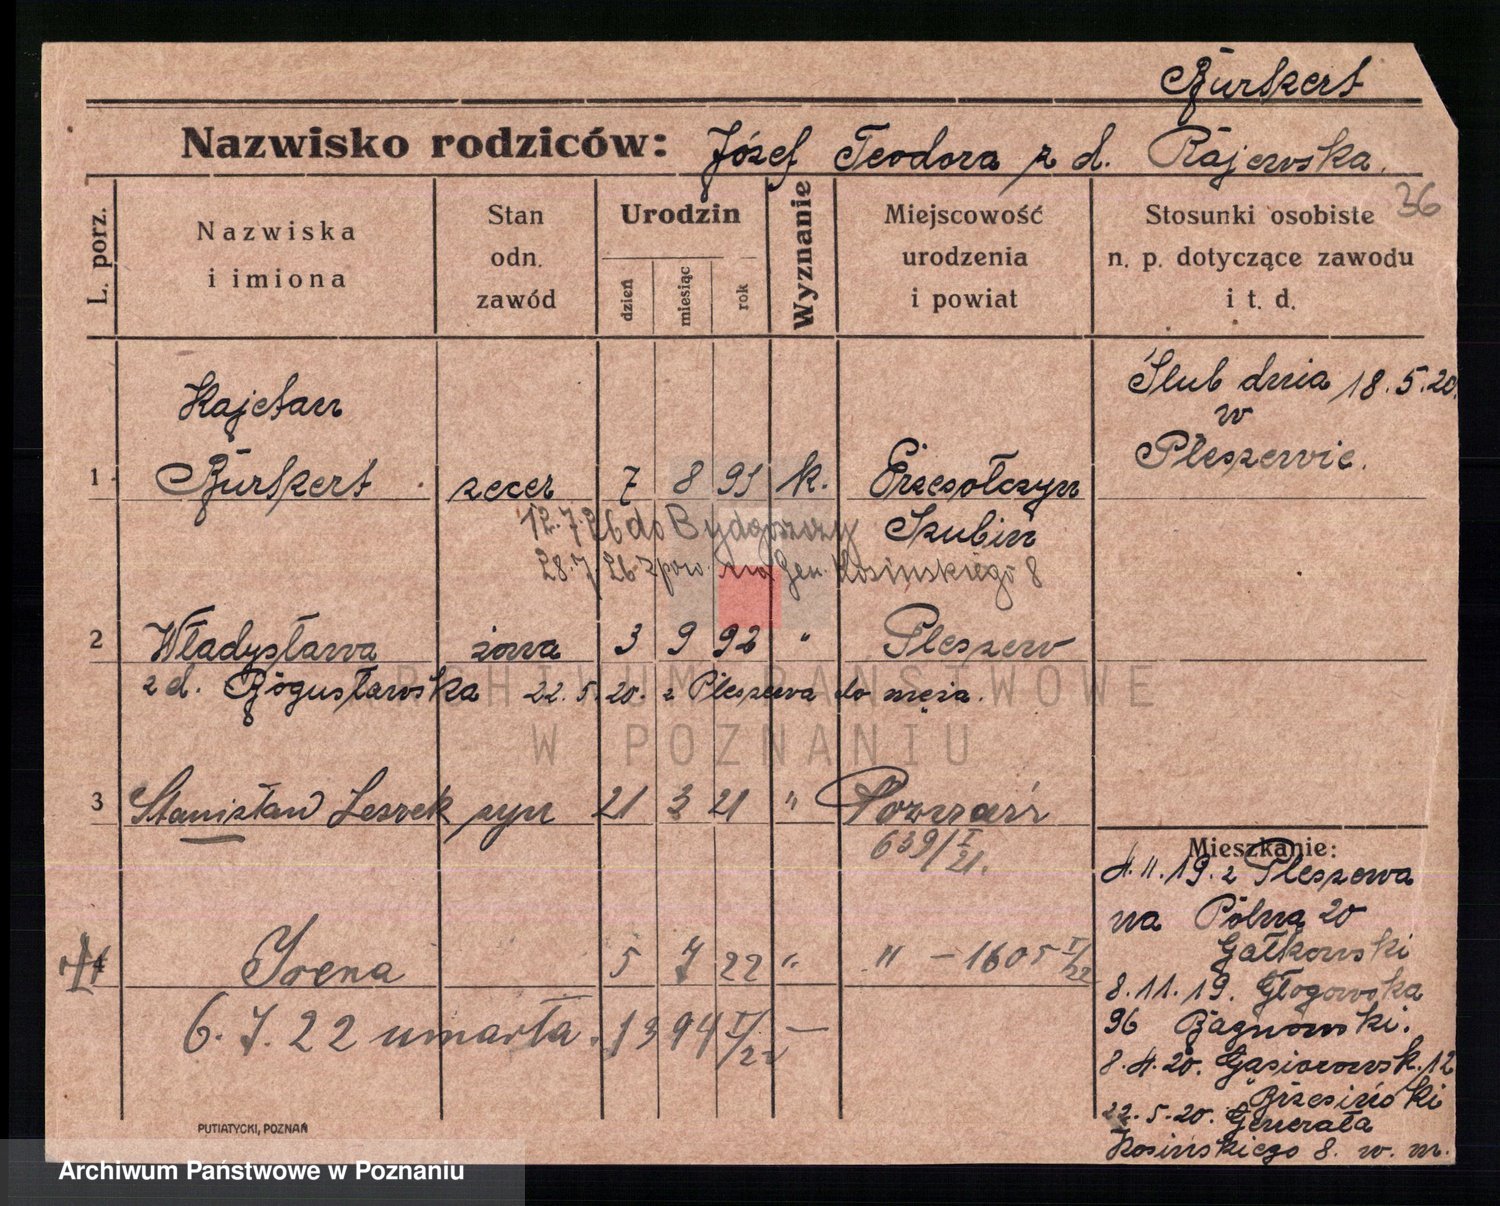 Burkert
Nazwisko rodziców: Józef Teodora z d. Rajewska.
36
L. porz.
Nazwiska
i imiona
Stan
odn.
zawód
Urodzin
dzień
miesiąc
rok
Wyznanie
Miejscowość
urodzenia
i powiat
Stosunki osobiste
n. p. dotyczące zawodu
i t. d.
Ślub dnia 18.5.20.
w
Pleszewie.
Kajetan
1 Burkert zecer 7 8 91 k.
Szubin
12.7.26 do Bydgoszczy
28.7.26 z pow. na Gen. Kosińskiego 8
2 Władysława żona 3 9 92 " Pleszew
z d. Bogusławska 22.5.20. z Pleszewa do męża.
ARCHIWUM PAŃSTWOWE
W POZNANIU
3 Stanisław Leszek syn 21 3 21 " Poznań
639/I
21.
4 Irena 5 7 22 " " – 1605 I/22
6.7.22 umarła. 1394 I/22 —
Mieszkanie:
4.11.19. z Pleszewa
na Polną 20
Gałkowski
8.11.19. Głogowska
96 Bagnowski.
8.4.20. Gąsiorowsk. 12
Brzesiński
22.5.20. Generała
Kosińskiego 8. w. m.
PUTIATYCKI, POZNAŃ
Archiwum Państwowe w Poznaniu